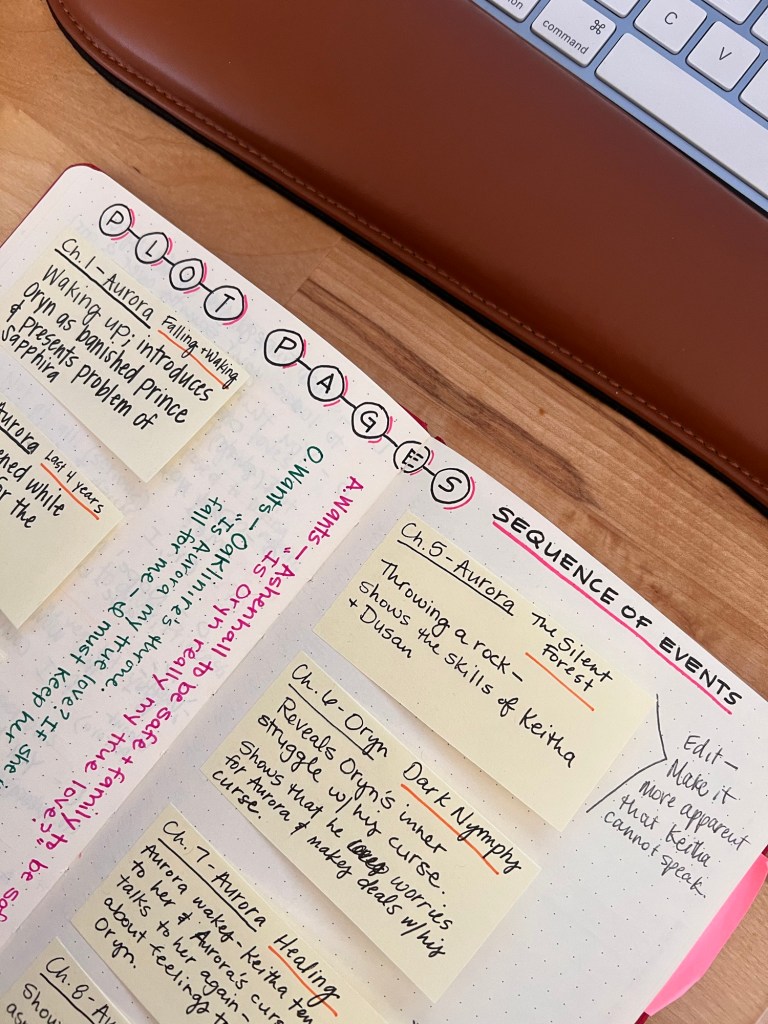 command
C
V
PLOT PAGES
Ch. 1 - Aurora
Falling + Waking
Waking up; introduces
Oryn as banished prince
& presents problem of
Sapphira
Last 4 years
ened while
or the
O. Wants - Oaklinire's throne.
"Is Aurora my true love? If she
fall for me - I must keep her
A. Wants - Ashenhall to be safe + family to be saf
"Is Oryn really my true love?"
SEQUENCE OF EVENTS
Ch. 5 - Aurora
The Silent
Forest
Throwing a rock -
shows the skills of Keitha
+ Dusan
Edit -
Make it
more apparent
that Keitha
cannot speak.
Ch. 6 - Oryn
Dark Nymphy
Reveals Oryn's inner
struggle w/ his curse.
Shows that he worries
for Aurora & makes deals w/ his
curse.
Ch. 7 - Aurora
Healing
Aurora wakes - Keitha ten
to her & Aurora's curs
talks to her again -
about feelings t
Oryn.
Ch. 8 - Au
Show